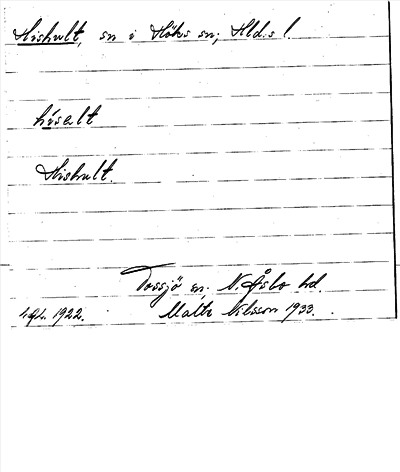 Hishult, sn i Höks sn; Hld.s l.
hisalt
Hishult.
Tossjö sn. N. Åsbo hd.
1922. Malte Nilsson 1933.